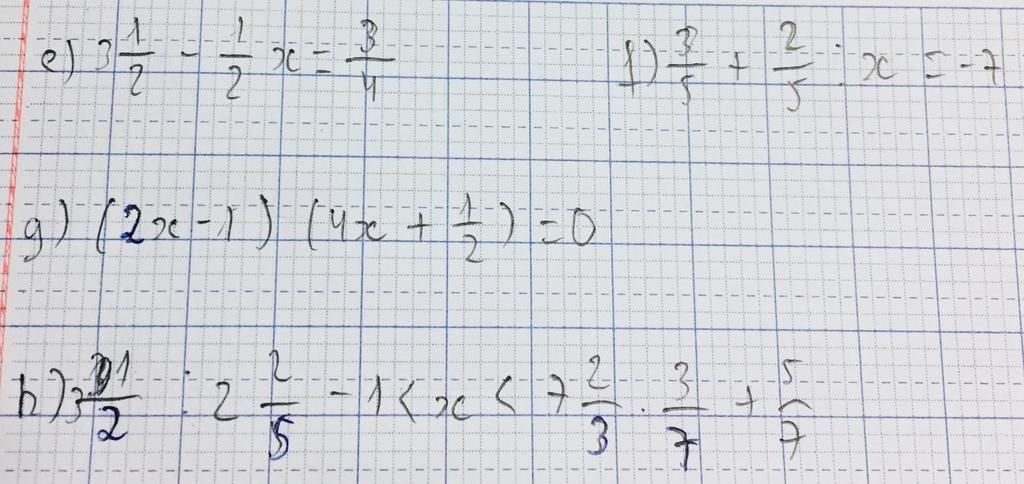 e) 3 1/2 - 1/2 x = 3/4 f) 3/5 + 2/5 : x = -7
g) (2x - 1) (4x + 1/2) = 0
h) 3 1/2 : 2 2/5 - 1 < x < 7 2/3 . 3/7 + 5/7